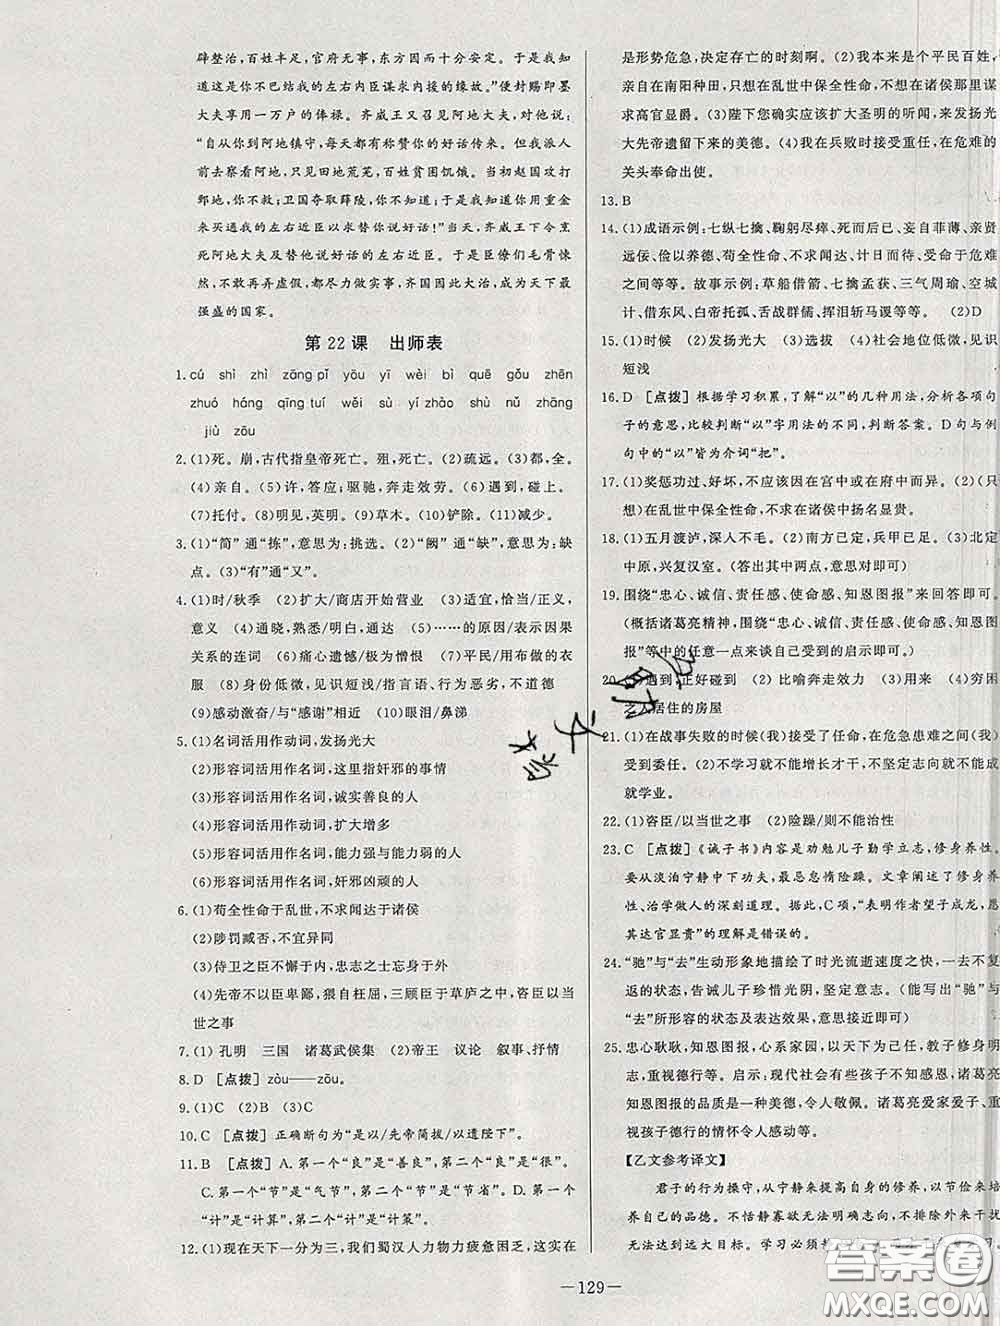 辟整治,百姓丰足,官府无事,东方因而十分安定。于是我
知道这是你不巴站我的左右内臣谋求内援的缘故。”便封赐即墨
大夫享用一万户的俸禄。齐威王又召见阿地大夫,对他说:
“自从你到阿地镇守,每天都有称赞你的好话传来。但我派人
前去察看阿地,只见田地荒芜,百姓贫困饥饿。当初赵国攻打
鄄地,你不救;卫国夺取薛陵,你不知道;于是你用重金
来买通我的左右近臣以求替你说好话!”当天,齐威王下令烹
死阿地大夫及替他说好话的左右近臣。于是臣僚们毛骨悚
然,不敢再弄虚假,都尽力做实事,齐国因此大治,成为天下最
强盛的国家。
第22课 出师表
1. cú shì zhì zāng pǐ yōu yī wèi bì quē gǒu zhēn
zhuó háng qīng tuí wěi sù yí zhào shù nǔ zhāng
jiù zōu
2. (1)死。崩,古代指皇帝死亡。殂,死亡。(2)疏远。(3)都,全。
(4)亲自。(5)许,答应;驱驰,奔走效劳。(6)遇到,碰上。
(7)托付。(8)明见,英明。(9)草木。(10)铲除。(11)减少。
3. (1)“简”通“拣”,意思为:挑选。(2)“阙”通“缺”,意思为:缺
点。(3)“有”通“又”。
4. (1)时/秋季 (2)扩大/商店开始营业 (3)适宜,恰当/正义,
意义 (4)通晓,熟悉/明白,通达 (5)……的原因/表示因果
关系的连词 (6)痛心遗憾/极为憎恨 (7)平民/用布做的衣
服 (8)身份低微,见识短浅/指言语、行为恶劣,不道德
(9)感动激奋/与“感谢”相近 (10)眼泪/鼻涕
5. (1)名词活用作动词,发扬光大
(2)形容词活用作名词,这里指奸邪的事情
(3)形容词活用作名词,诚实善良的人
(4)形容词活用作动词,扩大增多
(5)形容词活用作名词,能力强与能力弱的人
(6)形容词活用作名词,奸邪凶顽的人
6. (1)苟全性命于乱世,不求闻达于诸侯
(2)陟罚臧否,不宜异同
(3)侍卫之臣不懈于内,忠志之士忘身于外
(4)先帝不以臣卑鄙,猥自枉屈,三顾臣于草庐之中,咨臣以当
世之事
7. (1)孔明 三国 诸葛武侯集 (2)帝王 议论 叙事、抒情
8. D [点拨] zòu——zōu。
9. (1)C (2)B (3)C
10. C [点拨] 正确断句为“是以/先帝简拔/以遗陛下”。
11. B [点拨] A. 第一个“良”是“善良”,第二个“良”是“很”。
C. 第一个“节”是“气节”,第二个“节”是“节省”。D. 第一个
“计”是“计算”,第二个“计”是“计策”。
12. (1)现在天下一分为三,我们蜀汉人力物力疲惫困乏,这实在
是形势危急,决定存亡的时刻啊。(2)我本来是个平民百姓,
亲自在南阳种田,只想在乱世中保全性命,不想在诸侯那里谋
求高官显爵。(3)陛下您确实应该扩大圣明的听闻,来发扬光
大先帝遗留下来的美德。(4)我在兵败时接受重任,在危难的
关头奉命出使。
13. B
14. (1)成语示例:七纵七擒、鞠躬尽瘁、死而后已、妄自菲薄、亲贤
远佞、俭以养德、苟全性命、不求闻达、计日而待、受命于危难
之间等等。故事示例:草船借箭、七擒孟获、三气周瑜、空城
计、借东风、白帝托孤、舌战群儒、挥泪斩马谡等等。 (2)D
15. (1)时候 (2)发扬光大 (3)选拔 (4)社会地位低微,见识
短浅
16. D [点拨] 根据学习积累,了解“以”的几种用法,分析各项句
子的意思,比较判断“以”字用法的不同,判断答案。D句与例
句中的“以”皆为介词“把”。
17. (1)奖惩功过、好坏,不应该因在宫中或在府中而异。(2)(只
想)在乱世中保全性命,不求在诸侯中扬名显贵。
18. (1)五月渡泸,深入不毛。(2)南方已定,兵甲已足。(3)北定
中原,兴复汉室。(答出其中两点,意思对即可)
19. 围绕“忠心、诚信、责任感、使命感、知恩图报”来回答即可。
(概括诸葛亮精神,围绕“忠心、诚信、责任感、使命感、知恩图
报”等中的任意一点来谈自己受到的启示即可。)
20. (1)遇到,正好碰到 (2)比喻奔走效力 (3)用来 (4)穷困
之人居住的房屋
21. (1)在战事失败的时候(我)接受了任命,在危急患难之间(我)
受到委任。(2)不学习就不能增长才干,不坚定志向就不能成
就学业。
22. (1)咨臣/以当世之事 (2)险躁/则不能治性
23. C [点拨] 《诫子书》内容是劝勉儿子勤学立志,修身养性。
要从淡泊宁静中下功夫,最忌怠惰险躁。文章阐述了修身养
性、治学做人的深刻道理。据此,C项,“表明作者望子成龙,愿
其达官显贵”的理解是错误的。
24. “驰”与“去”生动形象地描绘了时光流逝速度之快,一去不复
返的状态,告诫儿子珍惜光阴,坚定意志。(能写出“驰”与
“去”所形容的状态及表达效果,意思接近即可)
25. 忠心耿耿,知恩图报,心系家园,以天下为己任,教子修身明
志,重视德行等。启示:现代社会有些孩子不知感恩,诸葛亮
知恩图报的品质是一种美德,令人敬佩。诸葛亮爱家爱子、重
视孩子德行的情怀令人感动等。
【乙文参考译文】
君子的行为操守,从宁静来提高自身的修养,以节俭来培
养自己的品德。不恬静寡欲无法明确志向,不排除外来干扰
无法达到远大目标。学习必须
—129—
答案卷
MXQE.COM